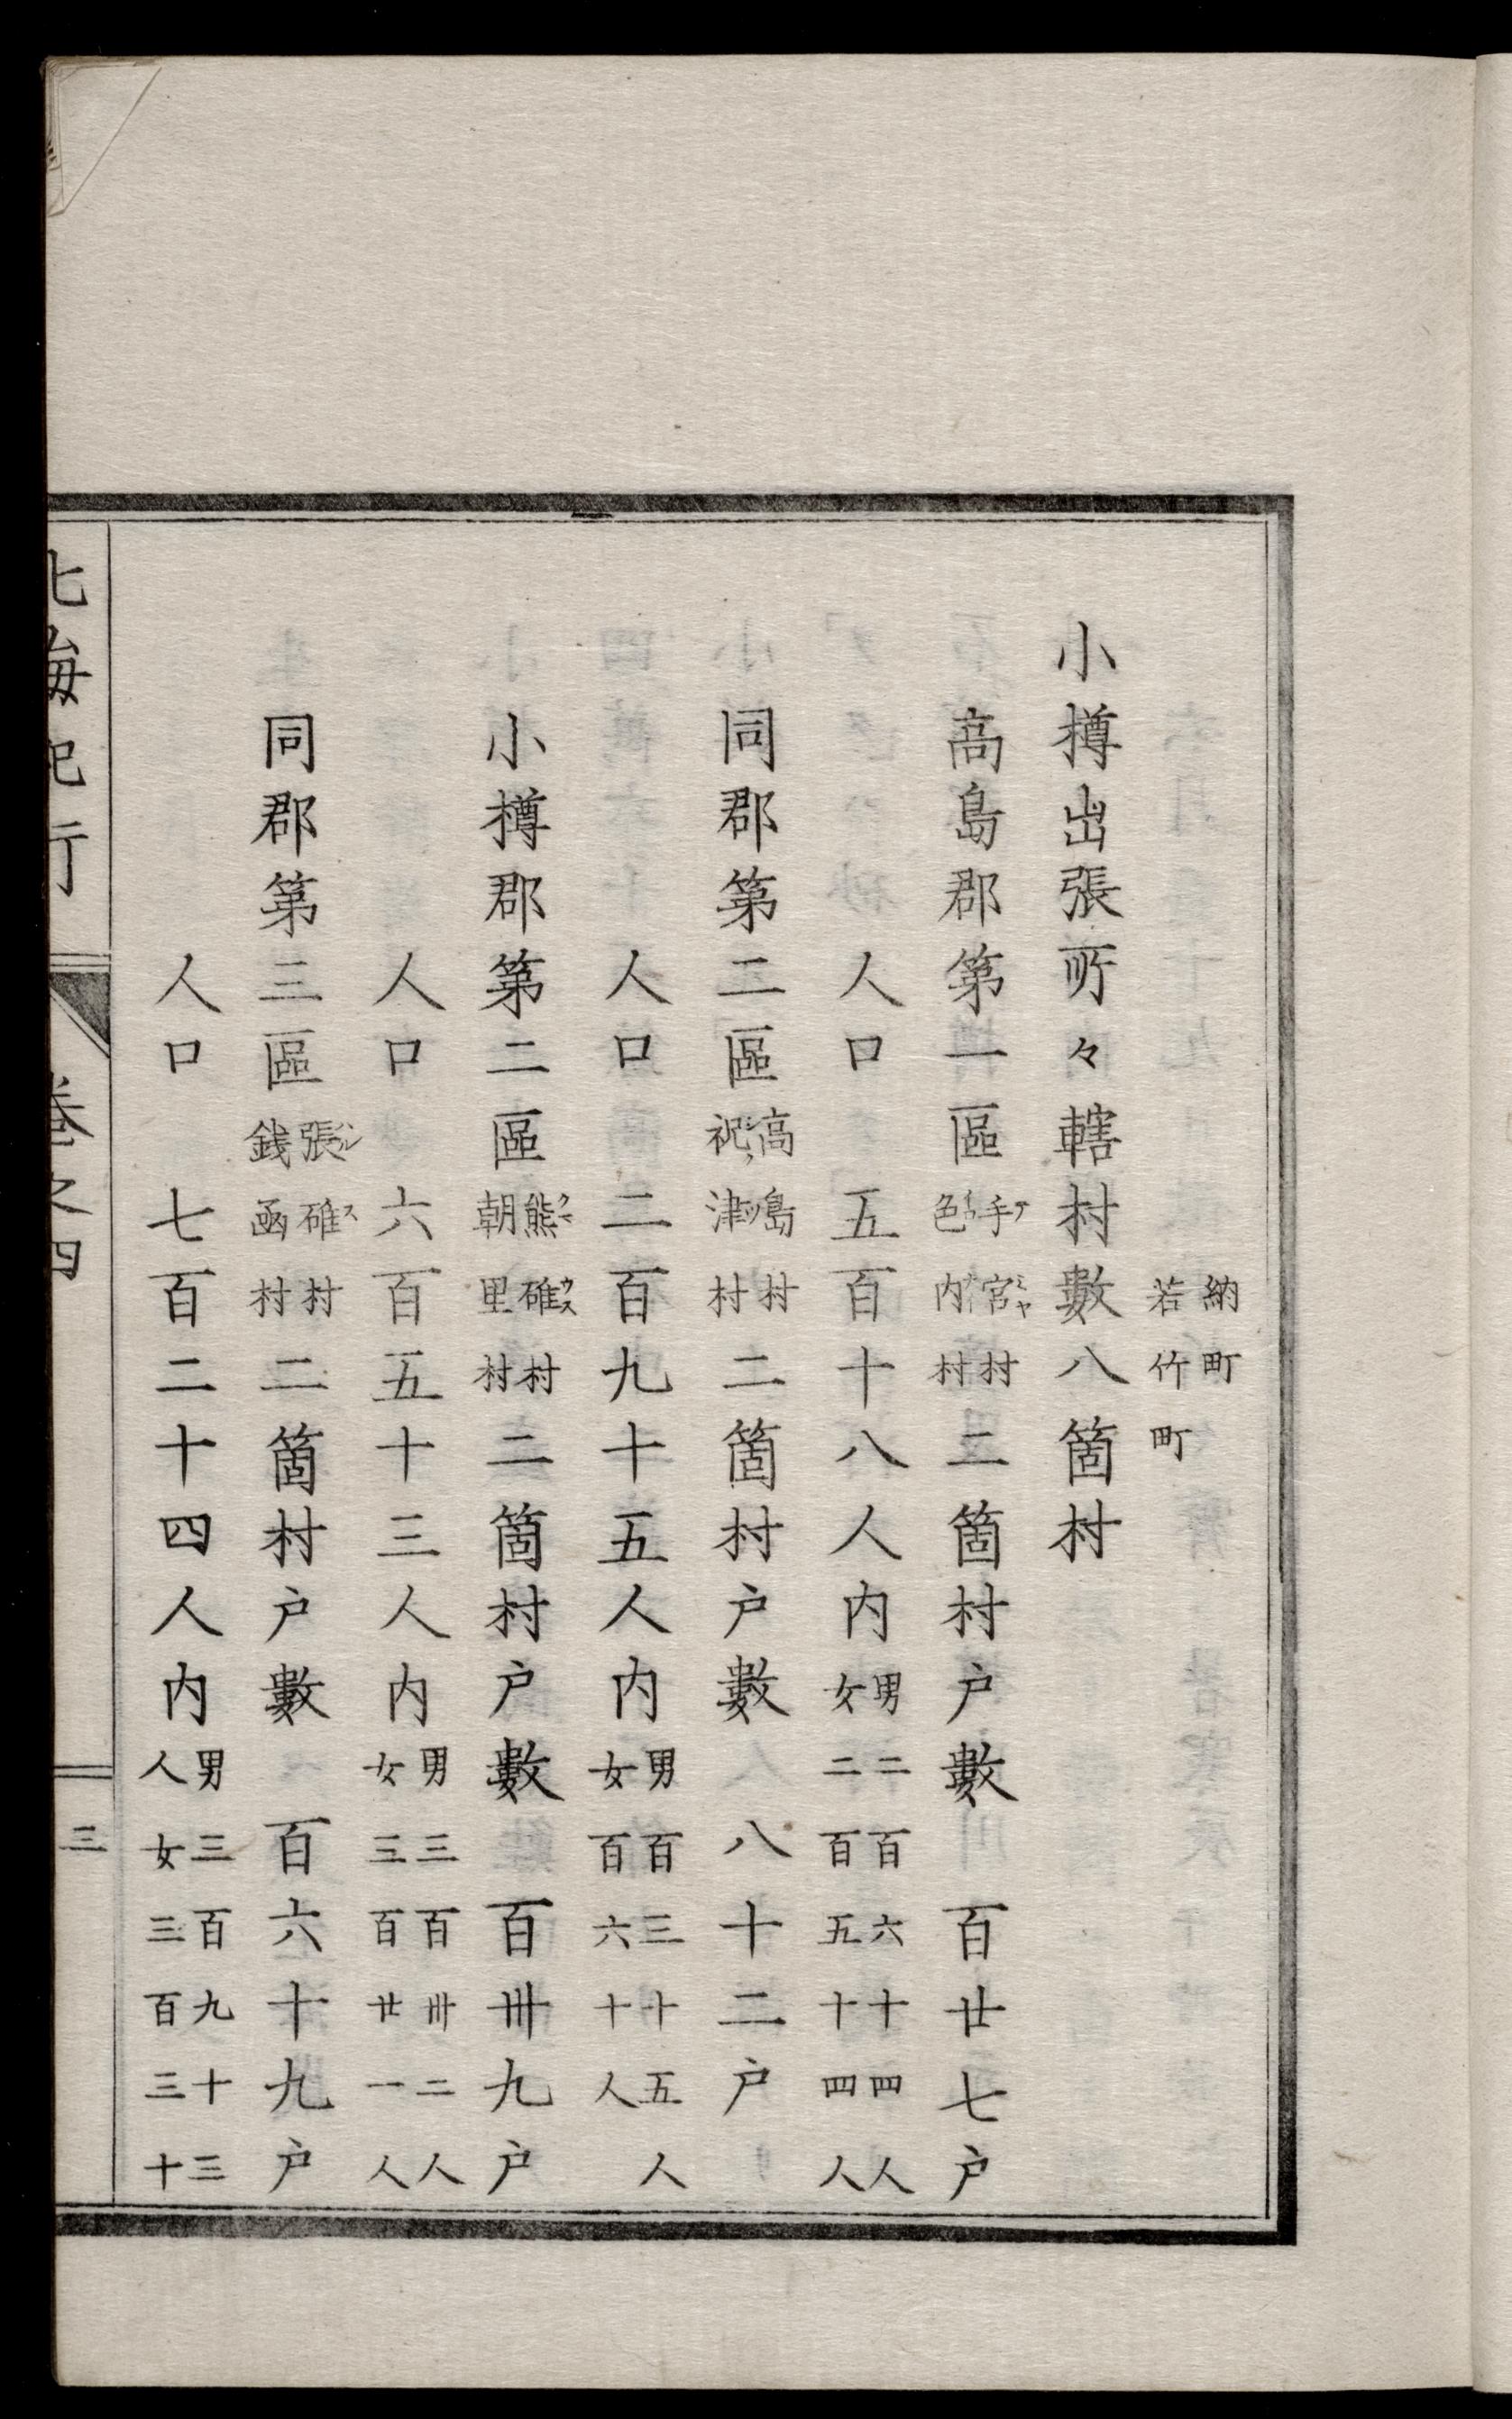 納町
若竹町
小樽出張所々轄村數八箇村
高島郡第一區 手宮村 色内村 二箇村戸數 百廿七戸
人口 五百十八人内 男二百六十四人 女二百五十四人
同郡第二區 高島村 祝津村 二箇村戸數 八十二戸
人口 二百九十五人内 男百三十五人 女百六十人
小樽郡第二區 熊碓村 朝里村 二箇村戸數 百卅九戸
人口 六百五十三人内 男三百卅二人 女三百廿一人
同郡第三區 張碓村 銭函村 二箇村戸數 百六十九戸
人口 七百二十四人内 男三百九十三人女三百三十
北海紀行 卷之四 三